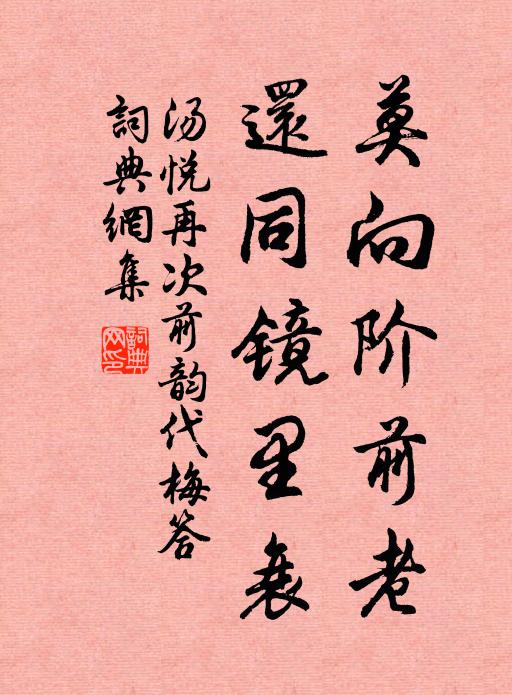 莫向阶前老
還同镜里衰
汤悦再次前韵代梅答
詞典網集
詞典
网印